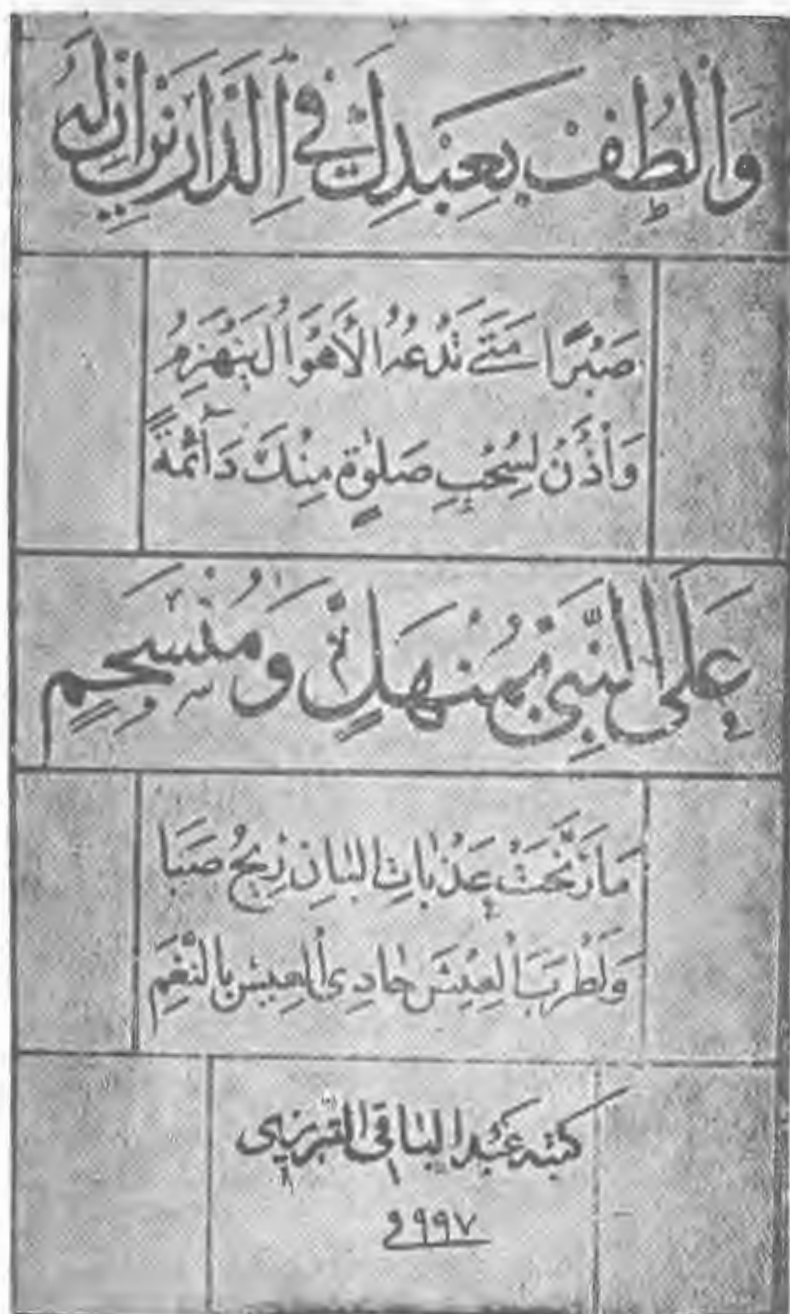 وَالْطُفْ بِعَبْدِكَ فِي الدَّارَيْنِ إِنَّ لَهُ
صَبْرًا مَتَى تَدْعُهُ الْأَهْوَالُ يَنْهَزِمُ
وَأْذَنْ لِسُحْبِ صَلٰوةٍ مِنْكَ دَآئِمَةً
عَلَى النَّبِيِّ بِمُنْهَلٍّ وَمُنْسَجِمٍ
مَا رَنَّحَتْ عَذَبَاتِ الْبَانِ رِيحُ صَبَا
وَلَطْرَبَ الْعِيسَ حَادِي الْعِيسِ بِالنَّغَمِ
كتبه عبد الباقي التبريزي
في ٩٩٧